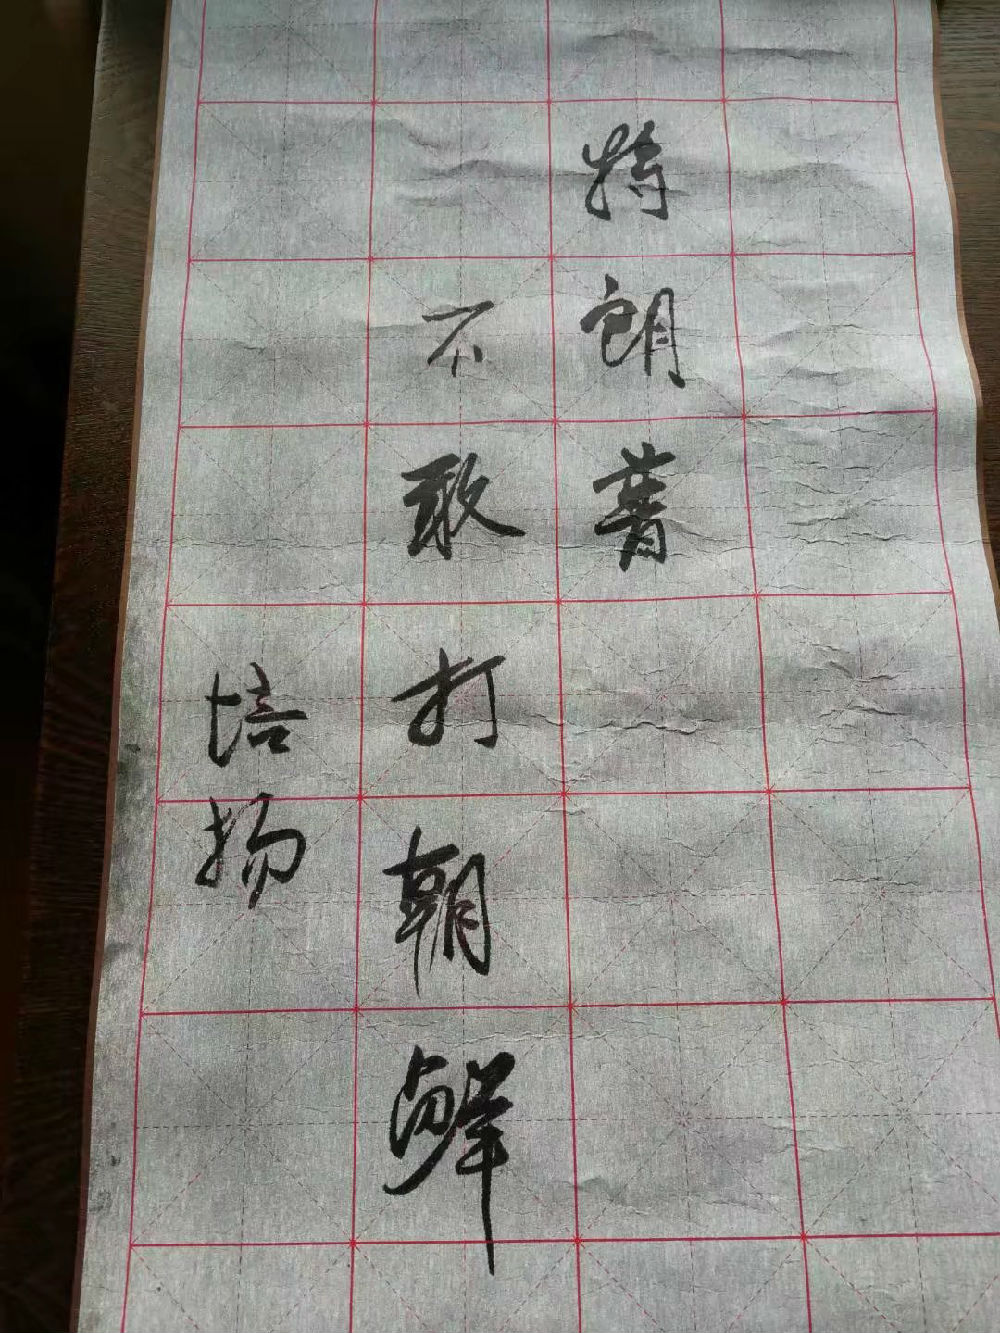 特朗普
不敢打朝鲜
培扬